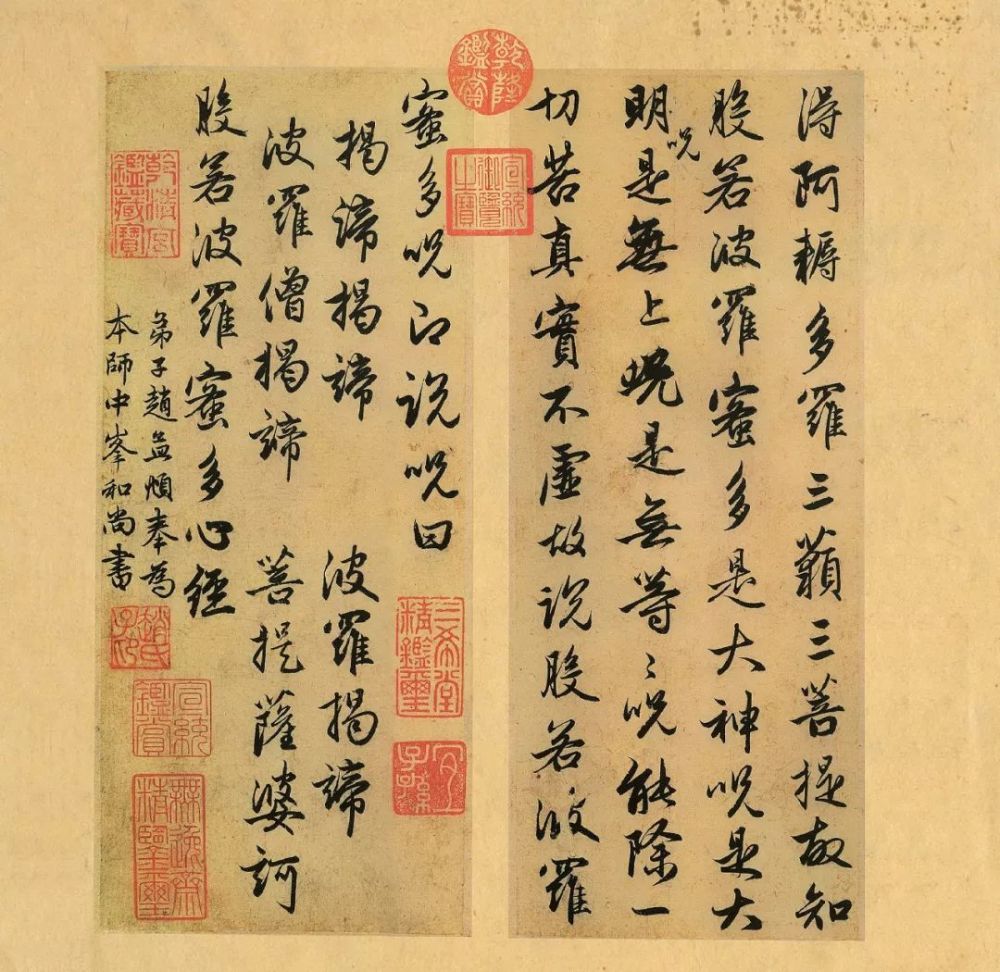 得阿耨多羅三藐三菩提故知
般若波羅蜜多是大神呪是大
明呪是無上呪是无等〻呪能除一
切苦真實不虛故説般若波羅
蜜多呪即説呪曰
揭諦揭諦 波羅揭諦
波羅僧揭諦 菩提薩婆訶
般若波羅蜜多心經
弟子趙孟頫奉為
本師中峯和尚書
乾隆鑑賞
宣統御覽之寶
三希堂精鑑璽
宜子孫
乾清宮鑑藏寶
趙氏子昂
宣統鑑賞
無逸齋精鑑璽